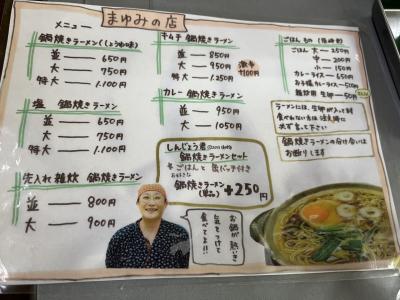 まゆみの店
メニュー
鍋焼きラーメン(しょうゆ味)
並 — 650円
大 — 750円
特大 — 1.100円
塩 鍋焼きラーメン
並 — 650円
大 — 750円
特大 — 1.100円
先入れ雑炊 鍋焼きラーメン
並 — 800円
大 — 900円
キムチ 鍋焼きラーメン
並 — 850円
大 — 950円
特大 — 1.250円
激辛
+100円
カレー 鍋焼きラーメン
並 — 950円
大 — 1050円
しんじょう君
鍋焼きラーメンセット
ごはんと 缶バッチ付き
お好きな
鍋焼きラーメン
(単品)
+250円
お鍋が熱いき
気をつけて
食べてよ!!
ごはん 大 — 250円
中 — 200円
小 — 150円
カレーライス — 650円
お子様カレーライス — 500円
雑炊用 生卵 — 50円
ラーメンには、生卵が入って
食べれない方は 注文時に
必ず言って下さい
鍋焼きラーメンの分け合いは
お断りします